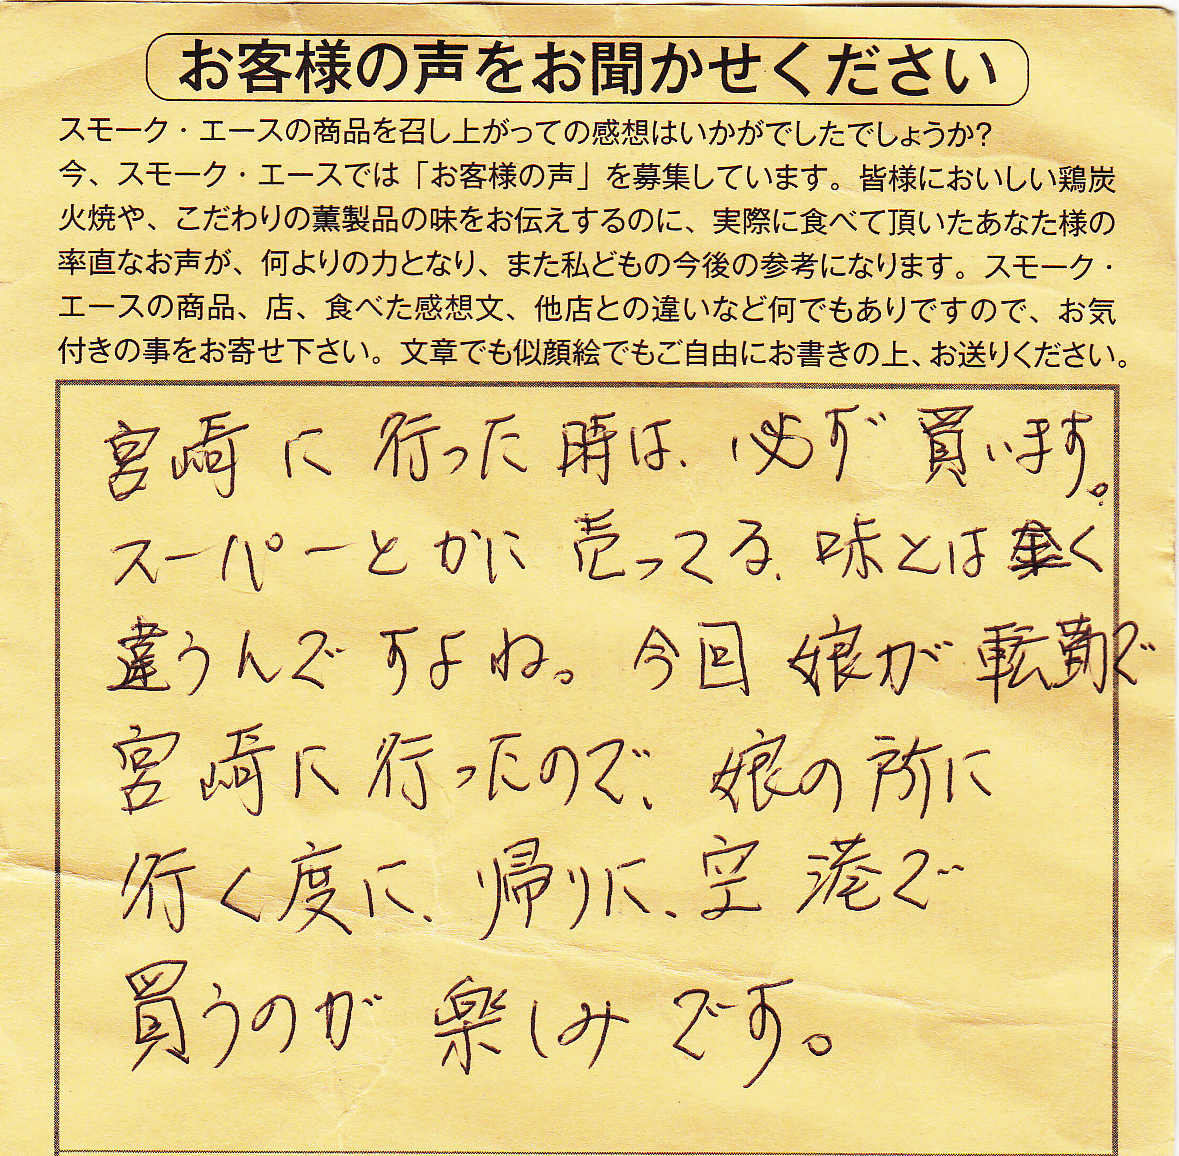 お客様の声をお聞かせください
スモーク・エースの商品を召し上がっての感想はいかがでしたでしょうか?
今、スモーク・エースでは「お客様の声」を募集しています。皆様においしい鶏炭
火焼や、こだわりの薫製品の味をお伝えするのに、実際に食べて頂いたあなた様の
率直なお声が、何よりの力となり、また私どもの今後の参考になります。スモーク・
エースの商品、店、食べた感想文、他店との違いなど何でもありですので、お気
付きの事をお寄せ下さい。文章でも似顔絵でもご自由にお書きの上、お送りください。
宮崎に行った時は、必ず買います。
スーパーとかに売ってる、味とは全く
違うんですよね。今回娘が転勤で
宮崎に行ったので、娘の所に
行く度に、帰りに、空港で
買うのが楽しみです。